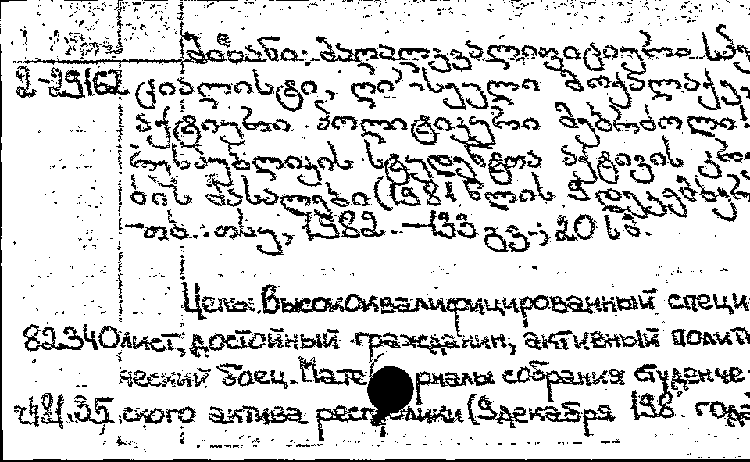 მიზანი: მაღალკვალიფიციური სპე
2-29162 ციალისტი, ღირსეული მოქალაქე,
აქტიური პოლიტიკური მებრძოლი.
რესპუბლიკის სტუდენტთა აქტივის კრე
ბის მასალები (1981 წლის 9 დეკემბერი
-თბ.: თსუ, 1982. -133 გვ.; 20 სმ.
Цель: Высококвалифицированный специ
82.340 лист, достойный гражданин, активный полити
ческий боец. Материалы собрания студенче-
ского актива республики (9 декабря 198 года